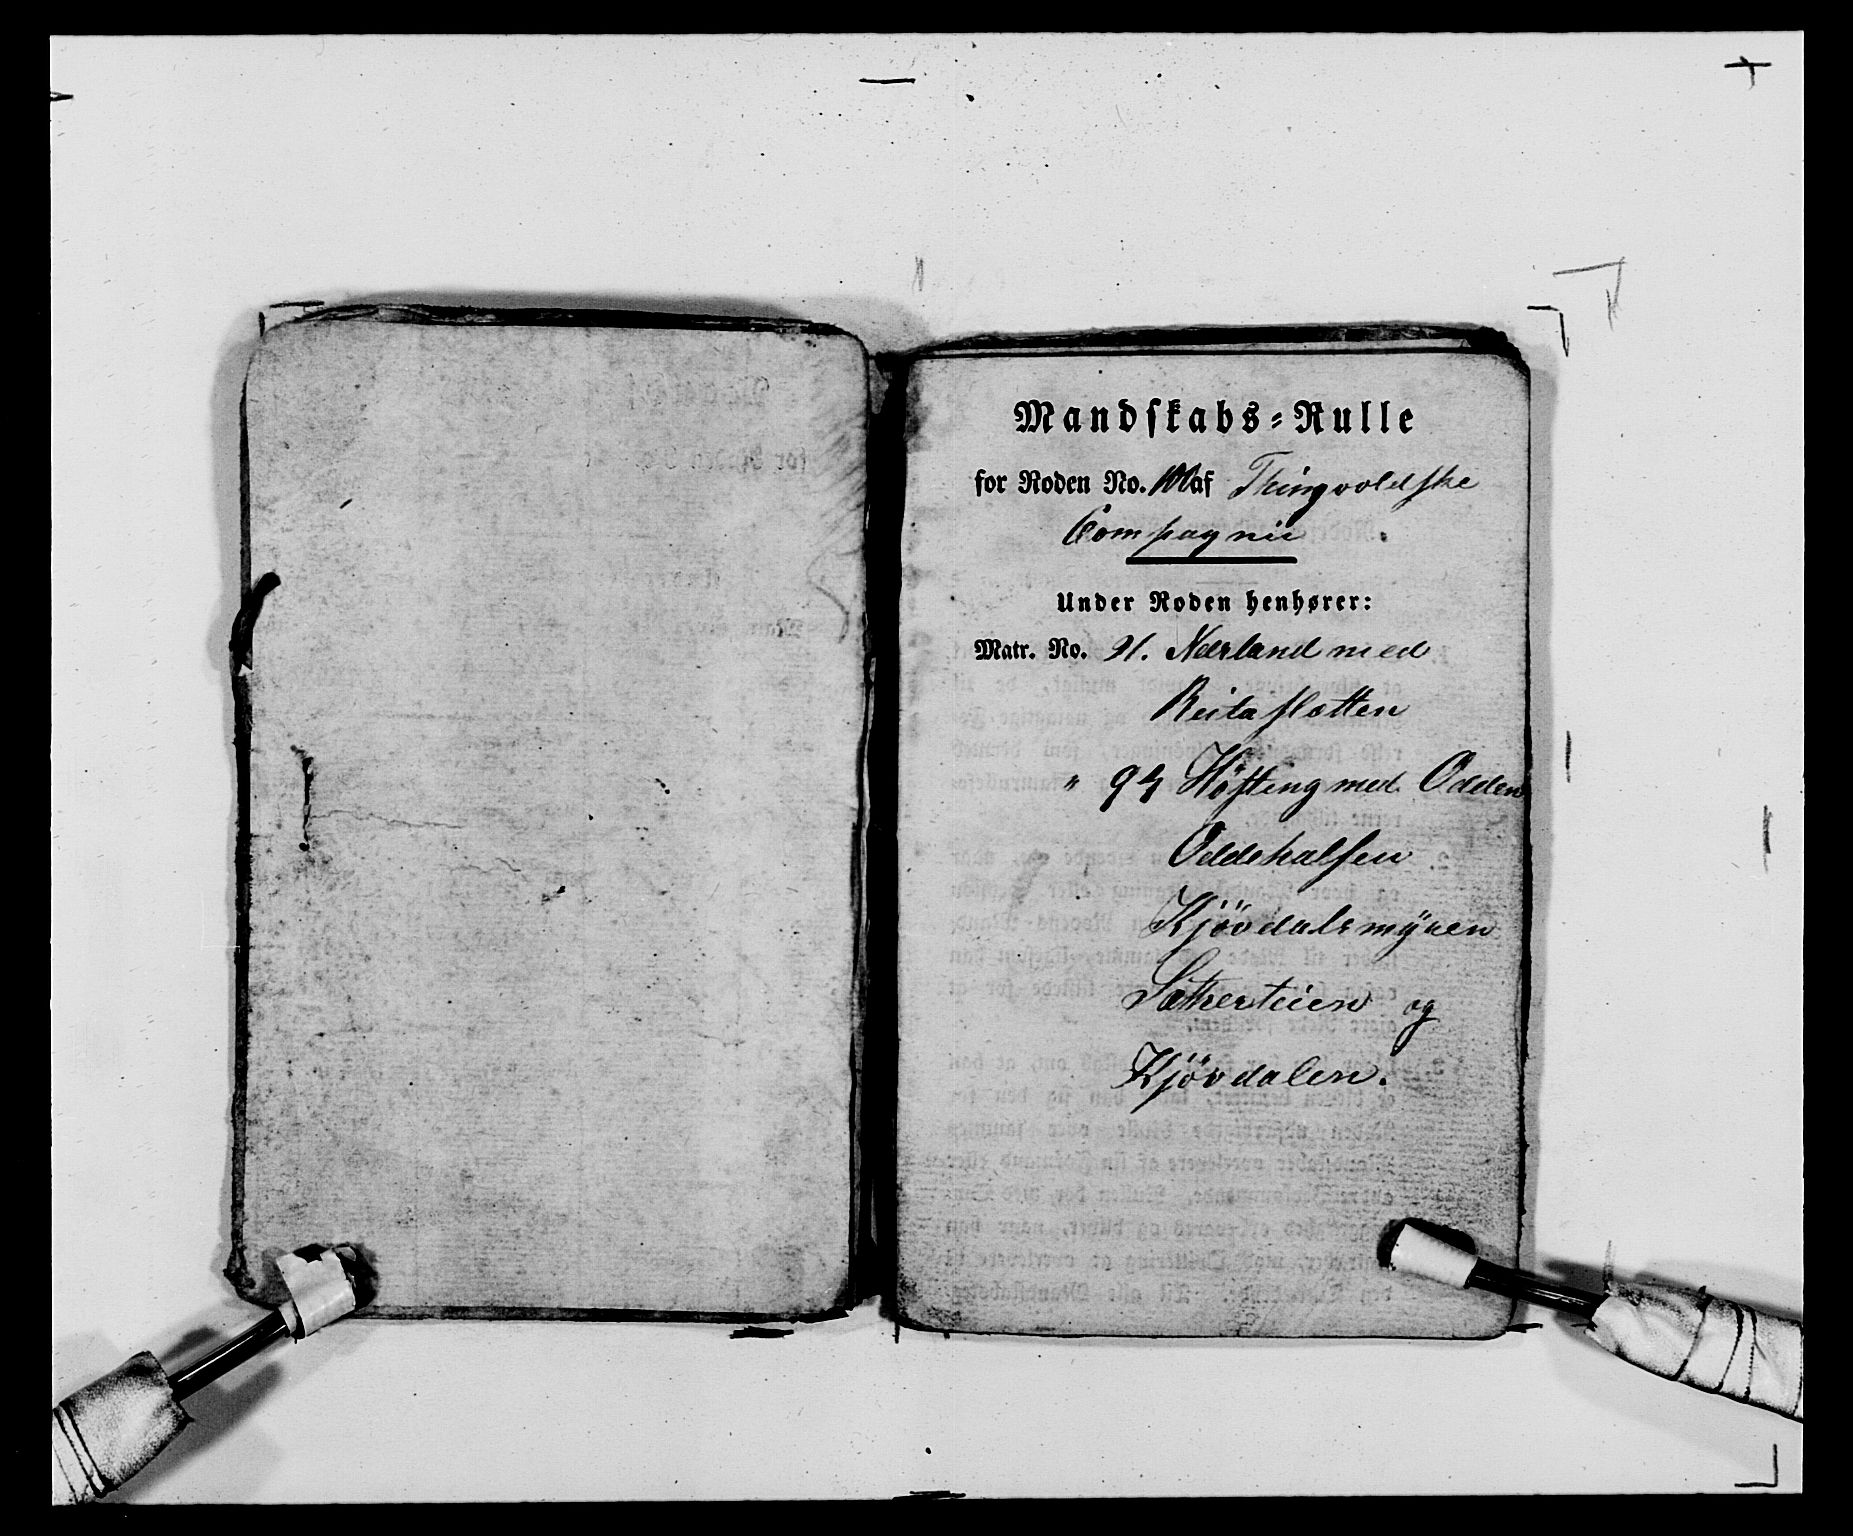 Mandskabs-Rulle
for Roden No. 100 af Thingvoldske
Compagnie.
Under Roden henhører:
Matr. No. 91. Nærland med
Reitaslotten
" 94 Höfting med Odden
Oddehalsen
Kjövdalsmÿren
Sætherteien og
Kjövdalen.